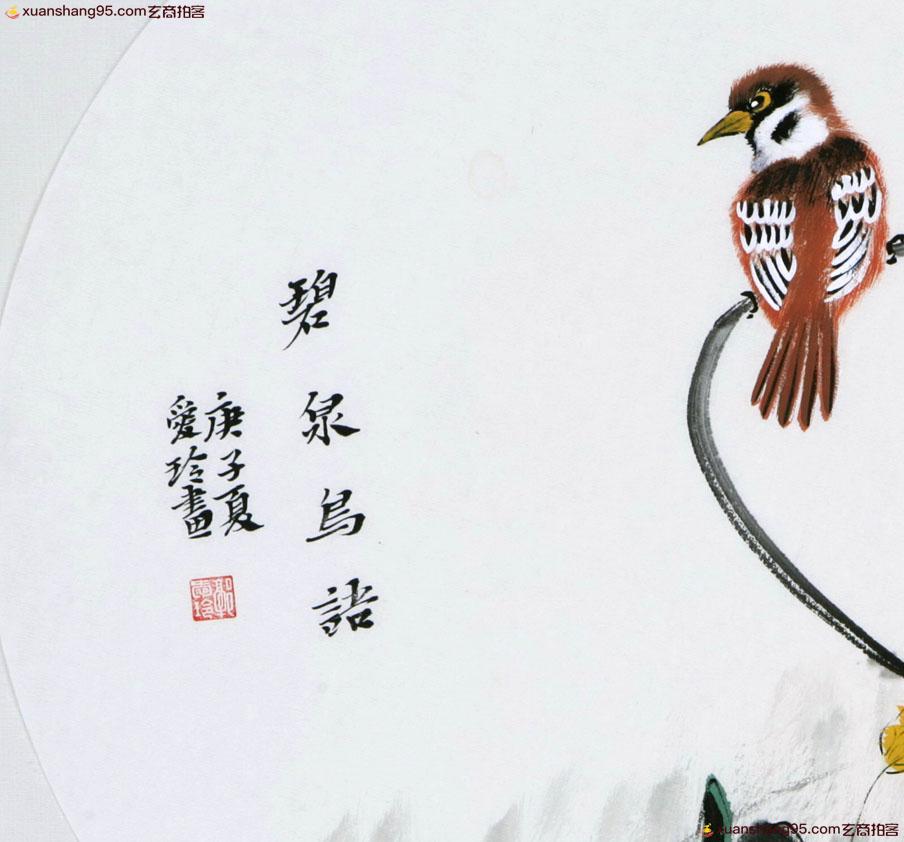 xuanshang95.com玄商拍客
碧泉鸟語
庚子夏
愛玲畫
xuanshang95.com玄商拍客